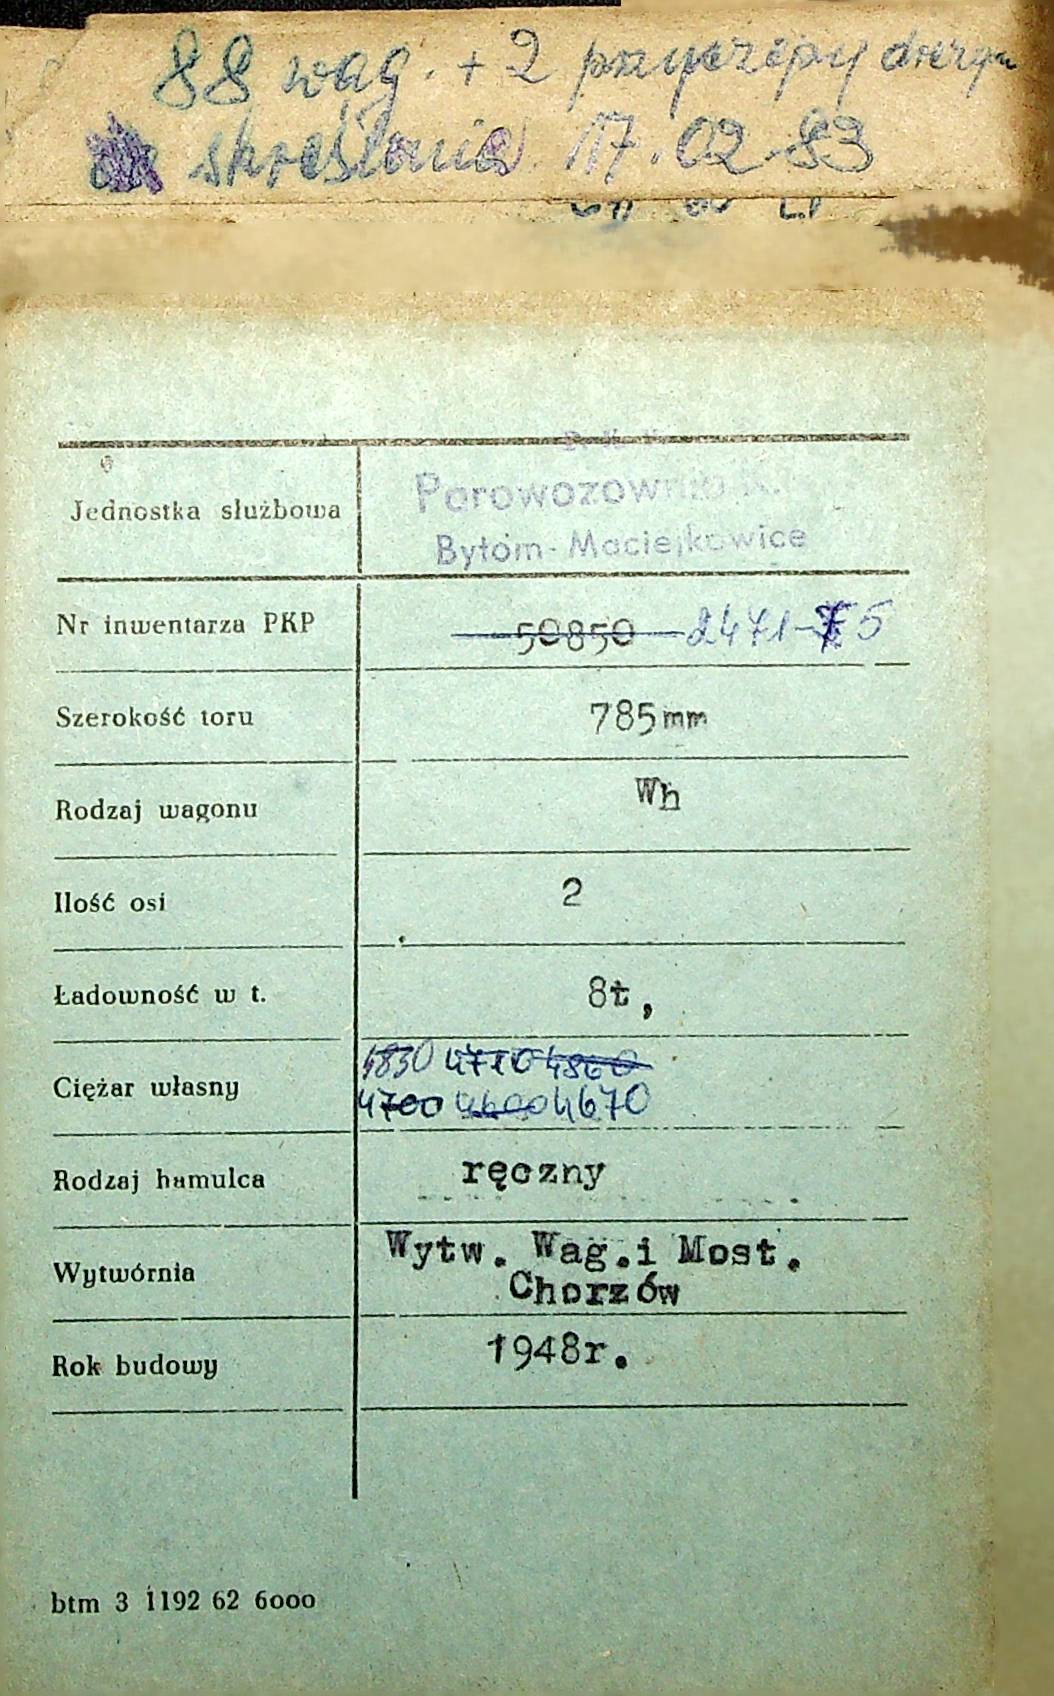 88 wag. + 2 przyczepy
skreślenia 17.02.83
Parowozownia
Jednostka służbowa
Bytom-Maciejkowice
Nr inwentarza PKP 50850 2471-5
Szerokość toru 785mm
Rodzaj wagonu Wh
Ilość osi 2
Ładowność w t. 8t,
4830 4710 4860
Ciężar własny
4700 4600 4670
Rodzaj hamulca ręczny
Wytw. Wag.i Most.
Wytwórnia
Chorzów
Rok budowy 1948r.
btm 3 1192 62 6000